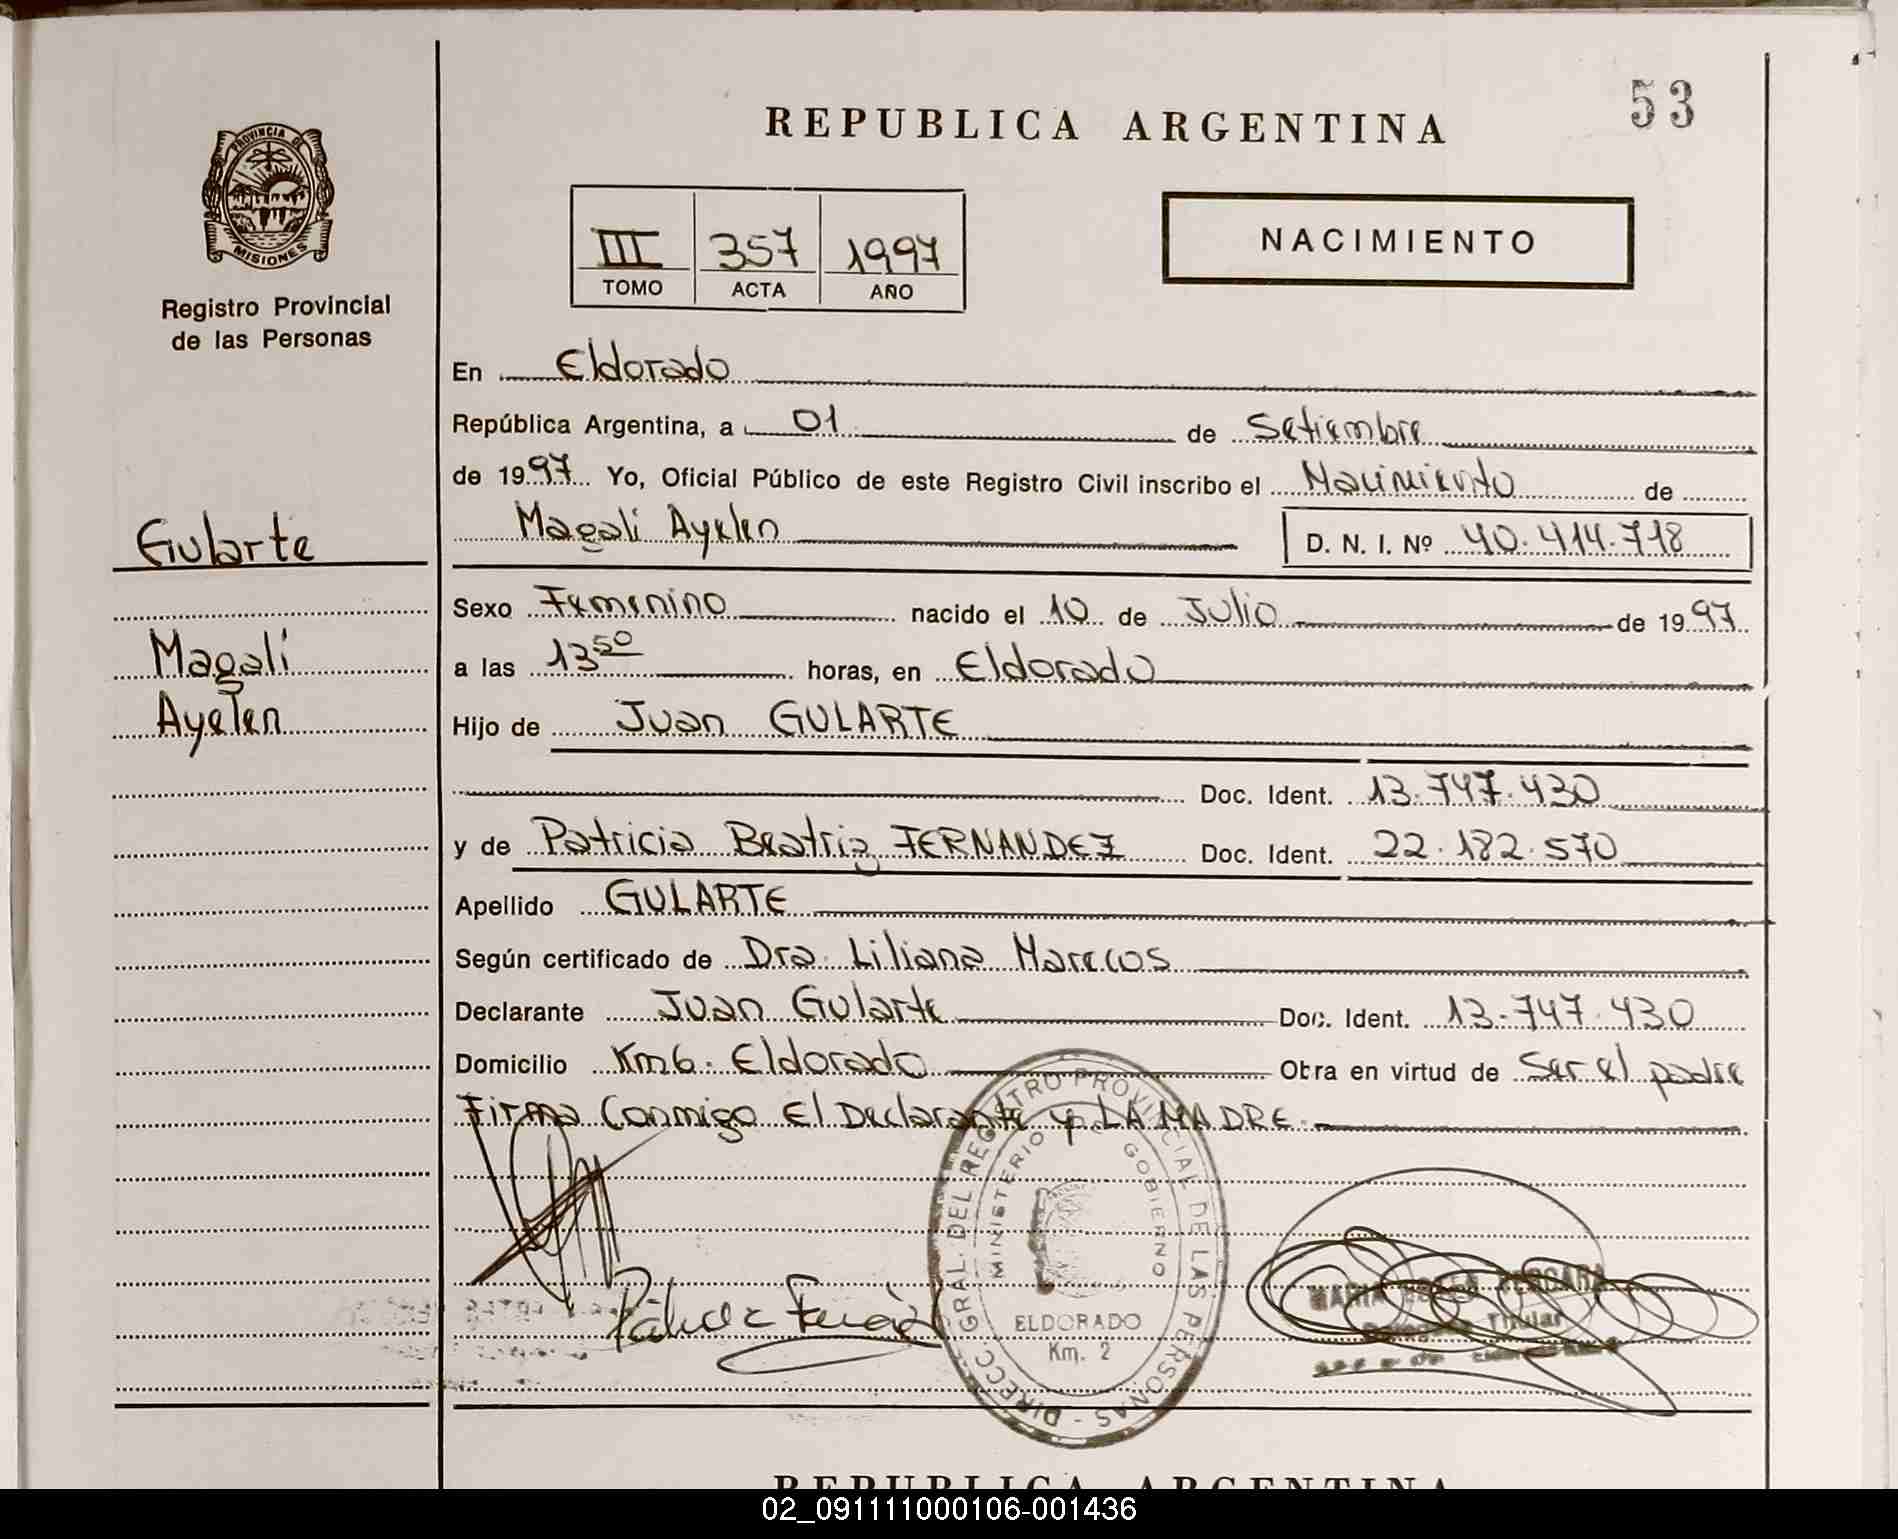 53
REPUBLICA ARGENTINA
PROVINCIA DE
MISIONES
Registro Provincial
de las Personas
III 357 1997
TOMO ACTA AÑO
NACIMIENTO
En Eldorado
República Argentina, a 01 de Setiembre
de 1997. Yo, Oficial Público de este Registro Civil inscribo el Nacimiento de
Gularte
Magali Ayelen D. N. I. Nº 40.414.718
Sexo Femenino nacido el 10 de Julio de 1997
Magali
a las 13 50 horas, en Eldorado
Ayelen
Hijo de Juan GULARTE
Doc. Ident. 13.747.430
y de Patricia Beatriz FERNANDEZ Doc. Ident. 22.182.570
Apellido GULARTE
Según certificado de Dra. Liliana Marecos
Declarante Juan Gularte Doc. Ident. 13.747.430
Domicilio Km6. Eldorado Obra en virtud de Ser el padre
Firma Conmigo El Declarante y LA MADRE.
DIRECC. GRAL. DEL REGISTRO PROVINCIAL DE LAS PERSONAS
MINISTERIO GOBIERNO
ELDORADO
Km. 2
MARIA VERGARA
Titular
REPUBLICA ARGENTINA
02_091111000106-001436